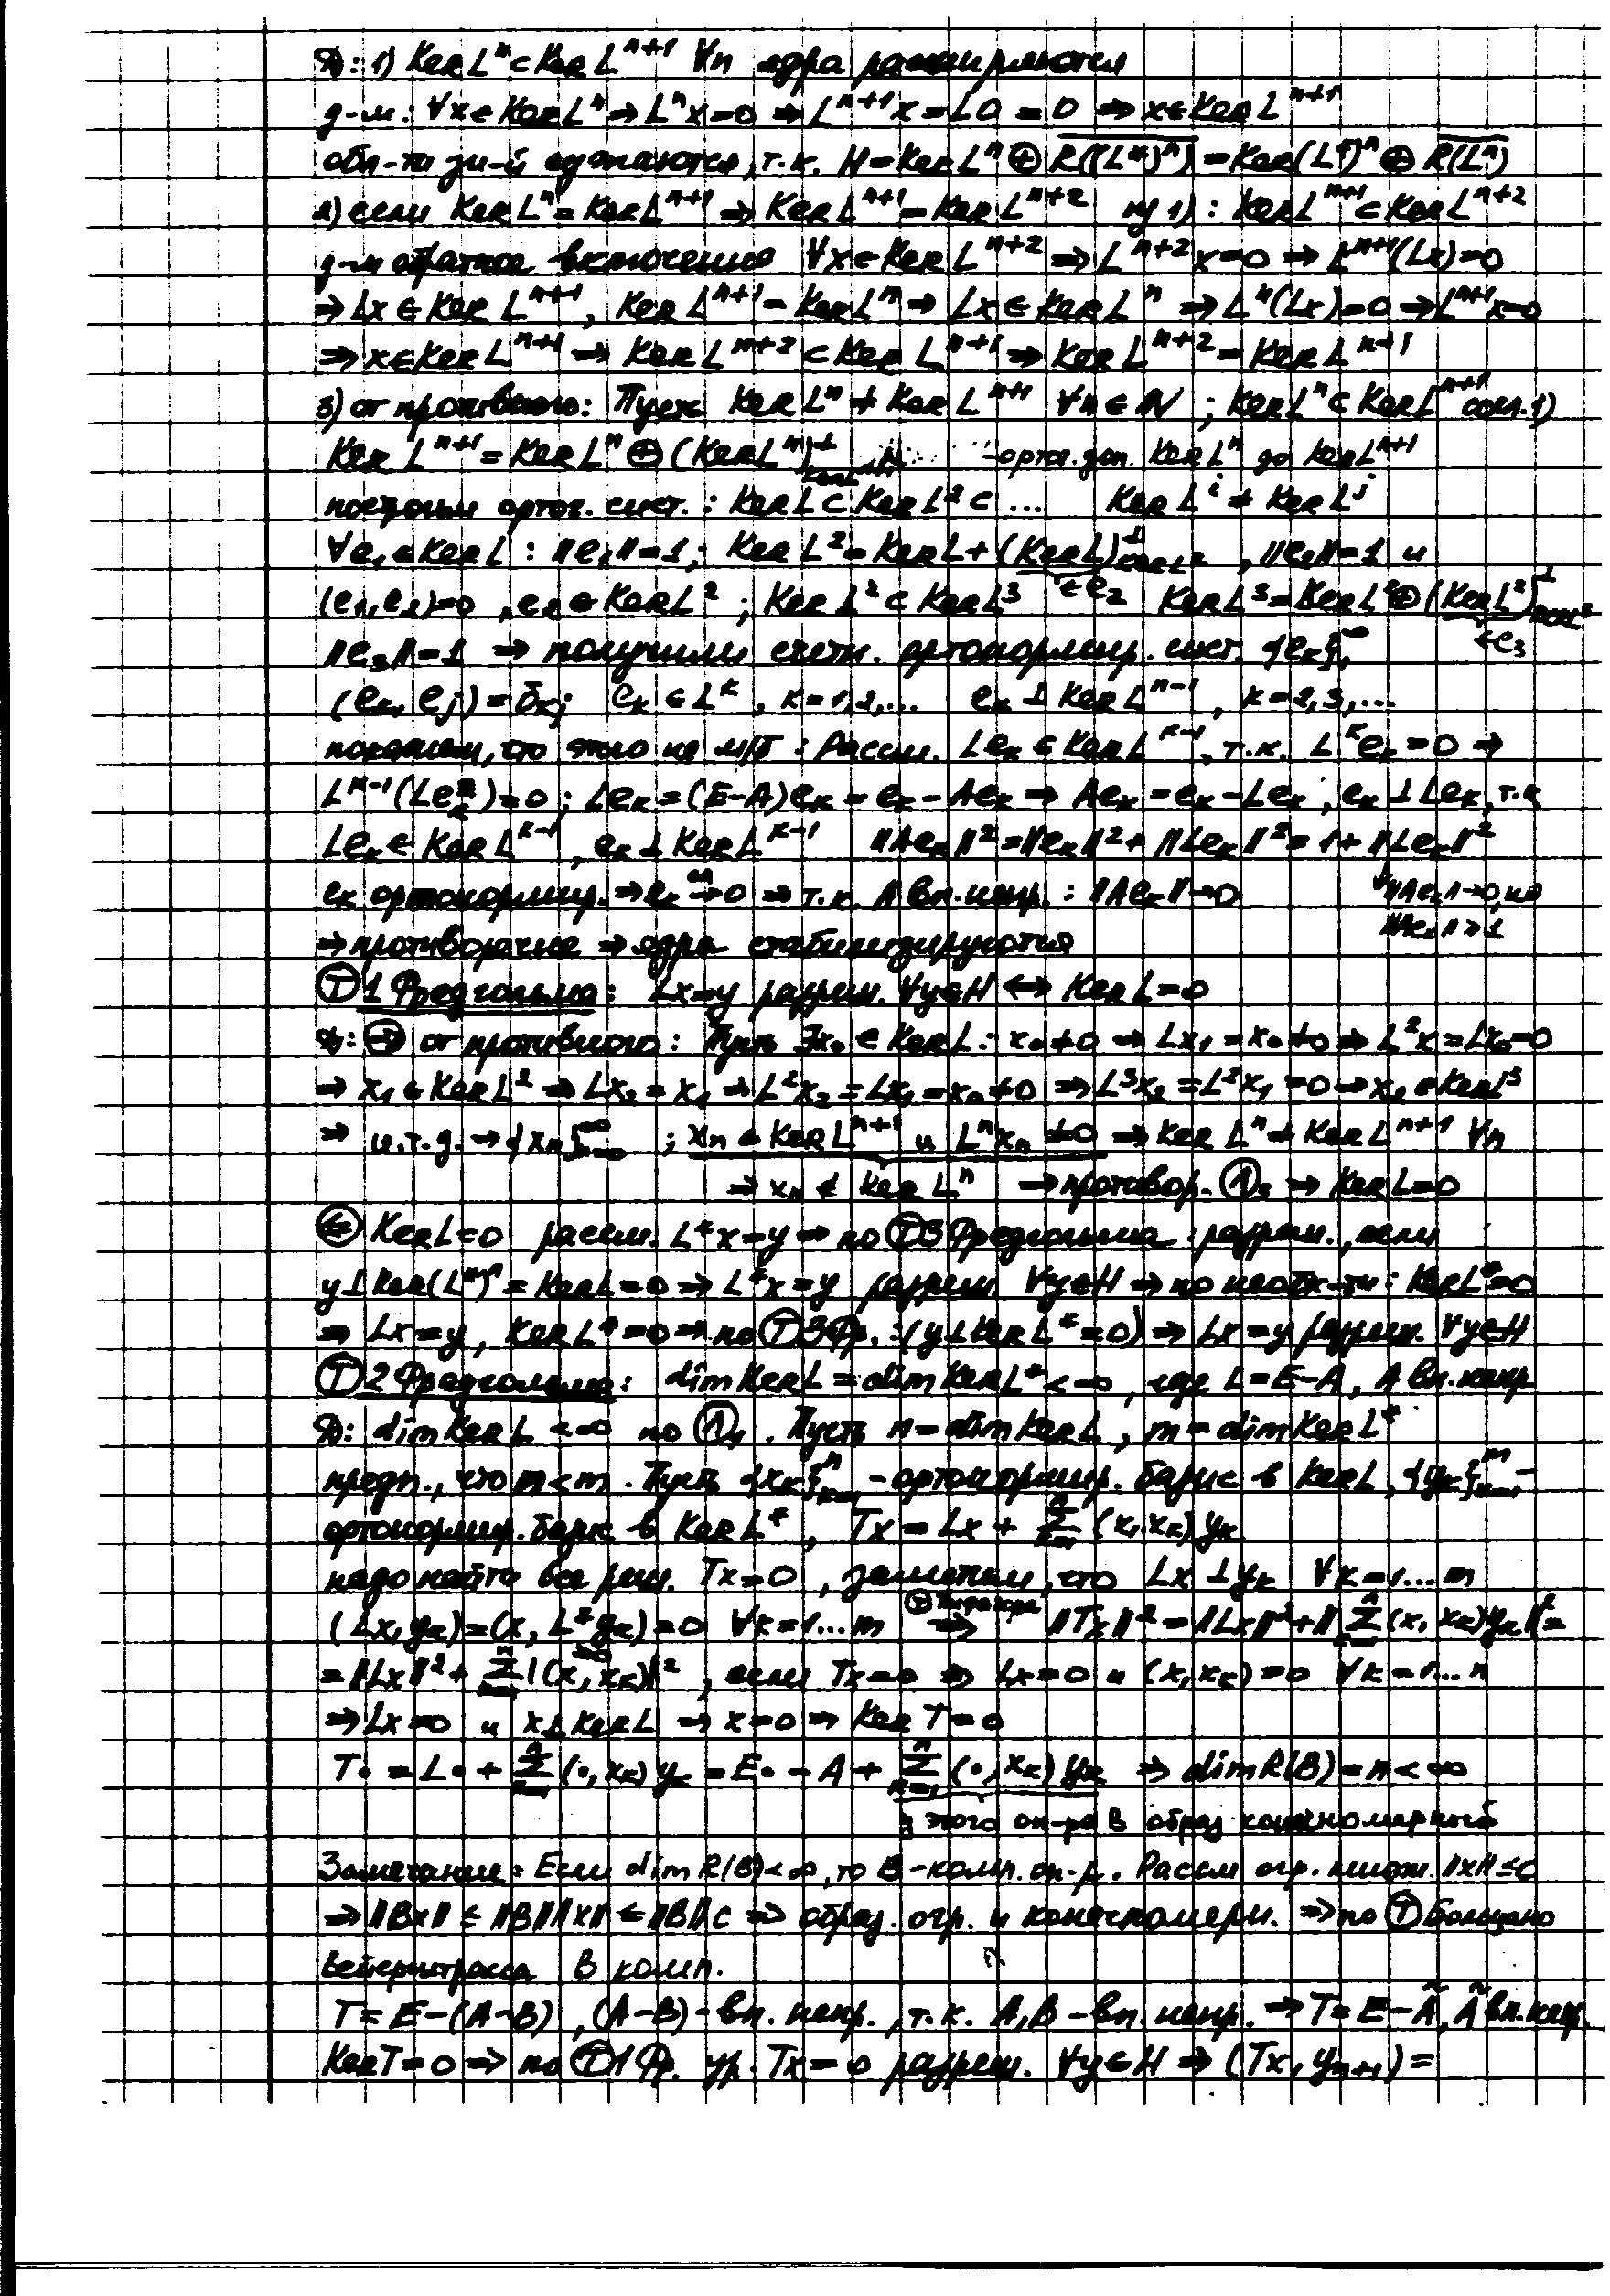 Д: 1) Ker Lⁿ ⊂ Ker Lⁿ⁺¹ ∀n ядра расширяются
д-м: ∀x ∈ Ker Lⁿ ⇒ Lⁿx = 0 ⇒ Lⁿ⁺¹x = L0 = 0 ⇒ x ∈ Ker Lⁿ⁺¹
обл-ти зн-й сужаются, т.к. H = Ker Lⁿ ⊕ \overline{R((L*)ⁿ)} = Ker(L*)ⁿ ⊕ \overline{R(Lⁿ)}
2) если Ker Lⁿ = Ker Lⁿ⁺¹ ⇒ Ker Lⁿ⁺¹ = Ker Lⁿ⁺² из 1): Ker Lⁿ⁺¹ ⊂ Ker Lⁿ⁺²
д-м обратное включение ∀x ∈ Ker Lⁿ⁺² ⇒ Lⁿ⁺²x = 0 ⇒ Lⁿ⁺¹(Lx) = 0
⇒ Lx ∈ Ker Lⁿ⁺¹, Ker Lⁿ⁺¹ = Ker Lⁿ ⇒ Lx ∈ Ker Lⁿ ⇒ Lⁿ(Lx) = 0 ⇒ Lⁿ⁺¹x = 0
⇒ x ∈ Ker Lⁿ⁺¹ ⇒ Ker Lⁿ⁺² ⊂ Ker Lⁿ⁺¹ ⇒ Ker Lⁿ⁺² = Ker Lⁿ⁺¹
3) от противного: Пусть Ker Lⁿ ≠ Ker Lⁿ⁺¹ ∀n ∈ N ; Ker Lⁿ ⊂ Ker Lⁿ⁺¹ согл. 1)
Ker Lⁿ⁺¹ = Ker Lⁿ ⊕ (Ker Lⁿ)^⊥_{Ker Lⁿ⁺¹} - ортог. доп. Ker Lⁿ до Ker Lⁿ⁺¹
построим ортог. сист.: Ker L ⊂ Ker L² ⊂ ... Ker Lⁱ ≠ Ker Lʲ
∀e₁ ∈ Ker L : ‖e₁‖ = 1; Ker L² = Ker L + (Ker L)^⊥_{Ker L²}, ‖e₂‖ = 1 и
(e₁, e₂) = 0, e₂ ∈ Ker L² ; Ker L² ⊂ Ker L³ ∈ e₂ Ker L³ = Ker L² ⊕ (Ker L²)^⊥_{Ker L³}
‖e₃‖ = 1 ⇒ получили счетн. ортонормир. сист. {eₖ}₁^∞ ∈ e₃
(eₖ, eⱼ) = δₖⱼ eₖ ∈ Lᵏ, k = 1,2,... eₖ ⊥ Ker Lⁿ⁻¹, k = 2,3,...
покажем, что этого не м/б : Рассм. Leₖ ∈ Ker Lᵏ⁻¹, т.к. Lᵏeₖ = 0 ⇒
Lᵏ⁻¹(Leₖ) = 0; Leₖ = (E-A)eₖ = eₖ - Aeₖ ⇒ Aeₖ = eₖ - Leₖ, eₖ ⊥ Leₖ, т.к
Leₖ ∈ Ker Lᵏ⁻¹, eₖ ⊥ Ker Lᵏ⁻¹ ‖Aeₖ‖² = ‖eₖ‖² + ‖Leₖ‖² = 1 + ‖Leₖ‖²
eₖ ортонормир. ⇒ eₖ →^{сл} 0 ⇒ т.к. A вп. непр.: ‖Aeₖ‖ → 0 ‖Aeₖ‖ → 0, но
⇒ противоречие ⇒ ядра стабилизируются ‖Aeₖ‖ ≥ 1
Ⓣ 1 Фредгольма: Lx = y разреш. ∀y ∈ H ⇔ Ker L = 0
Д: ⇒ от противного: Пусть ∃x₀ ∈ Ker L : x₀ ≠ 0 ⇒ Lx₁ = x₀ ≠ 0 ⇒ L²x = Lx₀ = 0
⇒ x₁ ∈ Ker L² ⇒ Lx₂ = x₁ ⇒ L²x₂ = Lx₁ = x₀ ≠ 0 ⇒ L³x₂ = L²x₁ = 0 ⇒ x₂ ∈ Ker L³
⇒ и.т.д. ⇒ {xₙ}_{n=0}^∞ ; xₙ ∈ Ker Lⁿ⁺¹ и Lⁿxₙ ≠ 0 ⇒ Ker Lⁿ ≠ Ker Lⁿ⁺¹ ∀n
⇒ xₙ ∉ Ker Lⁿ ⇒ противор. Ⓛ₃ ⇒ Ker L = 0
⇐ Ker L = 0 рассм. L*x = y ⇒ по Ⓣ3 Фредгольма: разреш., если
y ⊥ Ker(L*)* = Ker L = 0 ⇒ L*x = y разреш. ∀y ∈ H ⇒ по необх-ти: Ker L* = 0
⇒ Lx = y, Ker L* = 0 ⇒ по Ⓣ3 Фр.: (y ⊥ Ker L* = 0) ⇒ Lx = y разреш. ∀y ∈ H
Ⓣ 2 Фредгольма: dim Ker L = dim Ker L* < ∞, где L = E - A, A вп. непр
Д: dim Ker L < ∞ по Ⓛ₁. Пусть n = dim Ker L, m = dim Ker L*
предп., что n < m. Пусть {xₖ}_{k=1}ⁿ - ортонормир. базис в Ker L, {yₖ}_{k=1}ᵐ -
ортонормир. базис в Ker L*, Tx = Lx + Σ_{k=1}ⁿ (x, xₖ) yₖ
надо найти все реш. Tx = 0, заметим, что Lx ⊥ yₖ ∀k = 1...m
(Lx, yₖ) = (x, L*yₖ) = 0 ∀k = 1...m ⇒^{Ⓣ Пифагора} ‖Tx‖² = ‖Lx‖² + ‖Σ_{k=1}ⁿ (x, xₖ) yₖ‖² =
= ‖Lx‖² + Σ_{k=1}ⁿ |(x, xₖ)|², если Tx = 0 ⇒ Lx = 0 и (x, xₖ) = 0 ∀k = 1...n
⇒ Lx = 0 и x ⊥ Ker L ⇒ x = 0 ⇒ Ker T = 0
T• = L• + Σ_{k=1}ⁿ (•, xₖ) yₖ = E• - A + Σ_{k=1}ⁿ (•, xₖ) yₖ ⇒ dim R(B) = n < ∞
у этого оп-ра B образ конечномерный
Замечание: Если dim R(B) < ∞, то B - комп. оп-р. Рассм огр. множ. ‖x‖ ≤ c
⇒ ‖Bx‖ ≤ ‖B‖‖x‖ ≤ ‖B‖c ⇒ образ. огр. и конечномерн. ⇒ по Ⓣ Больцано
Вейерштрасса B комп.
T = E - (A - B), (A - B) - вп. непр., т.к. A, B - вп. непр. ⇒ T = E - Ã, Ã вп. непр.
Ker T = 0 ⇒ по Ⓣ1 Фр. ур. Tx = 0 разреш. ∀y ∈ H ⇒ (Tx, yₙ₊₁) =